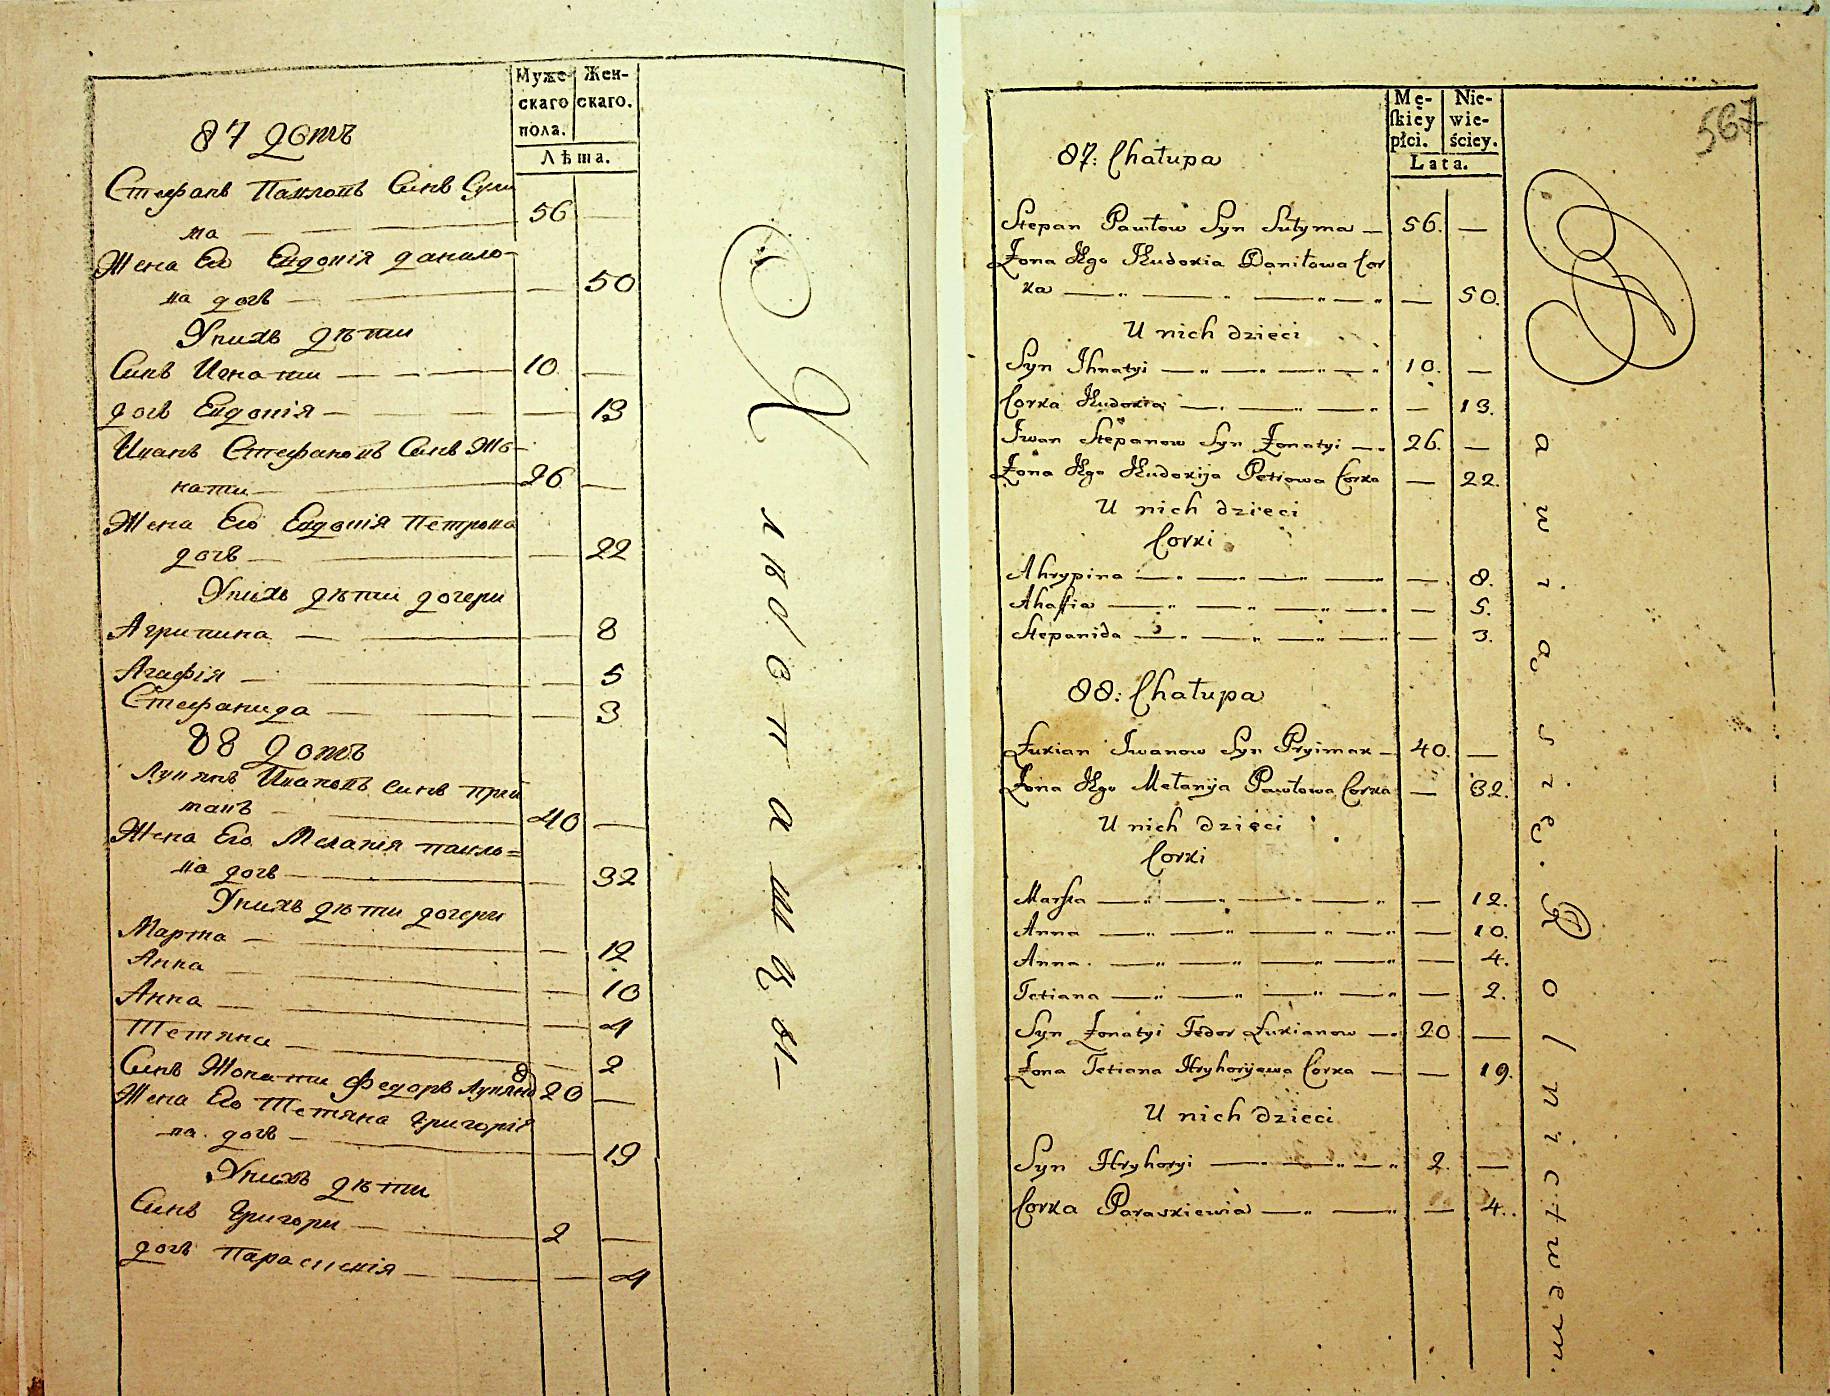 Муже-
скаго
пола.
Жен-
скаго.
Лѣта.
87 домъ
Стефанъ Павловъ Синъ Сули
ма 56
Жена Его Евдокія данило-
ва дочъ 50
Унихъ дѣти
Синъ Игнати 10
дочъ Евдокія 13
Иванъ Стефановъ Синъ Жо-
нати 26
Жена Его Евдокія Петрова
дочъ 22
Унихъ дѣти дочери
Агрипина 8
Агафія 5
Стефанида 3
88 домъ
Лукянъ Ивановъ синъ прий
макъ 40
Жена Его Меланія павло=
ва дочъ 32
Унихъ дѣти дочери
Марта 12
Анна 10
Анна 4
Тетяна 2
Синъ Жонати Федоръ Лукяно
в 20
Жена Его Тетяна Григорїе
ва дочъ 19
Унихъ дѣти
Синъ Григори 2
дочъ Парасчекія 4
Хлѣбопашцы
567
Mę-
ſkiéy
płci.
Nie-
wie-
ściey.
Lata.
87: Chałupa
Stepan Pawłow Syn Sułyma 56. —
Żona Jego Ewdokia Daniłowa Cor
ka — 50.
U nich dzieci
Syn Ihnatyi 10. —
Corka Ewdokia — 13.
Iwan Stepanow Syn Żonatyi 26. —
Żona Jego Ewdokija Petrowa Corka — 22.
U nich dzieci
Corki
Ahrypina — 8.
Ahafia — 5.
Stepanida — 3.
88: Chałupa
Łukian Iwanow Syn Pryimak 40. —
Żona Jego Mełanija Pawłowa Corka — 32.
U nich dzieci
Corki
Marfa — 12.
Anna — 10.
Anna — 4.
Tetiana — 2.
Syn Żonatyi Fedor Łukianow 20 —
Żona Tetiana Hryhoryewa Corka — 19.
U nich dzieci
Syn Hryhoryi 2. —
Corka Paraskiewia — 4.
Bawią się Rolnictwem.